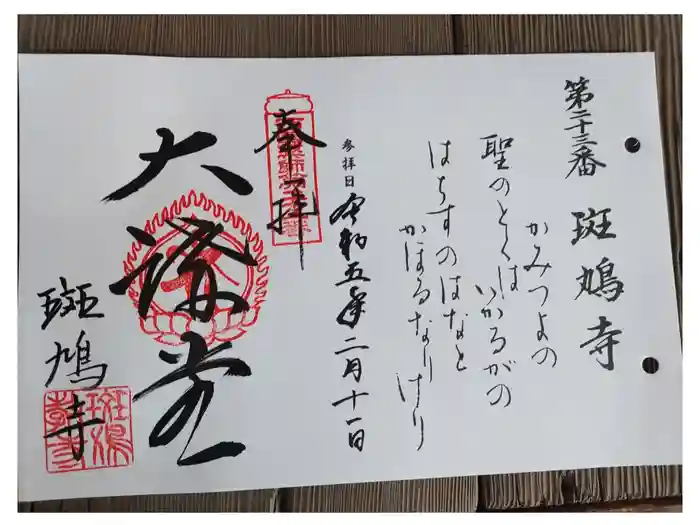 第二十三番 斑鳩寺
かみつよの
聖のとくは
いかるがの
はちすのはなと
かほるなりけり
参拝日 令和五年二月十一日
奉拝
大講堂
斑鳩寺
斑鳩寺